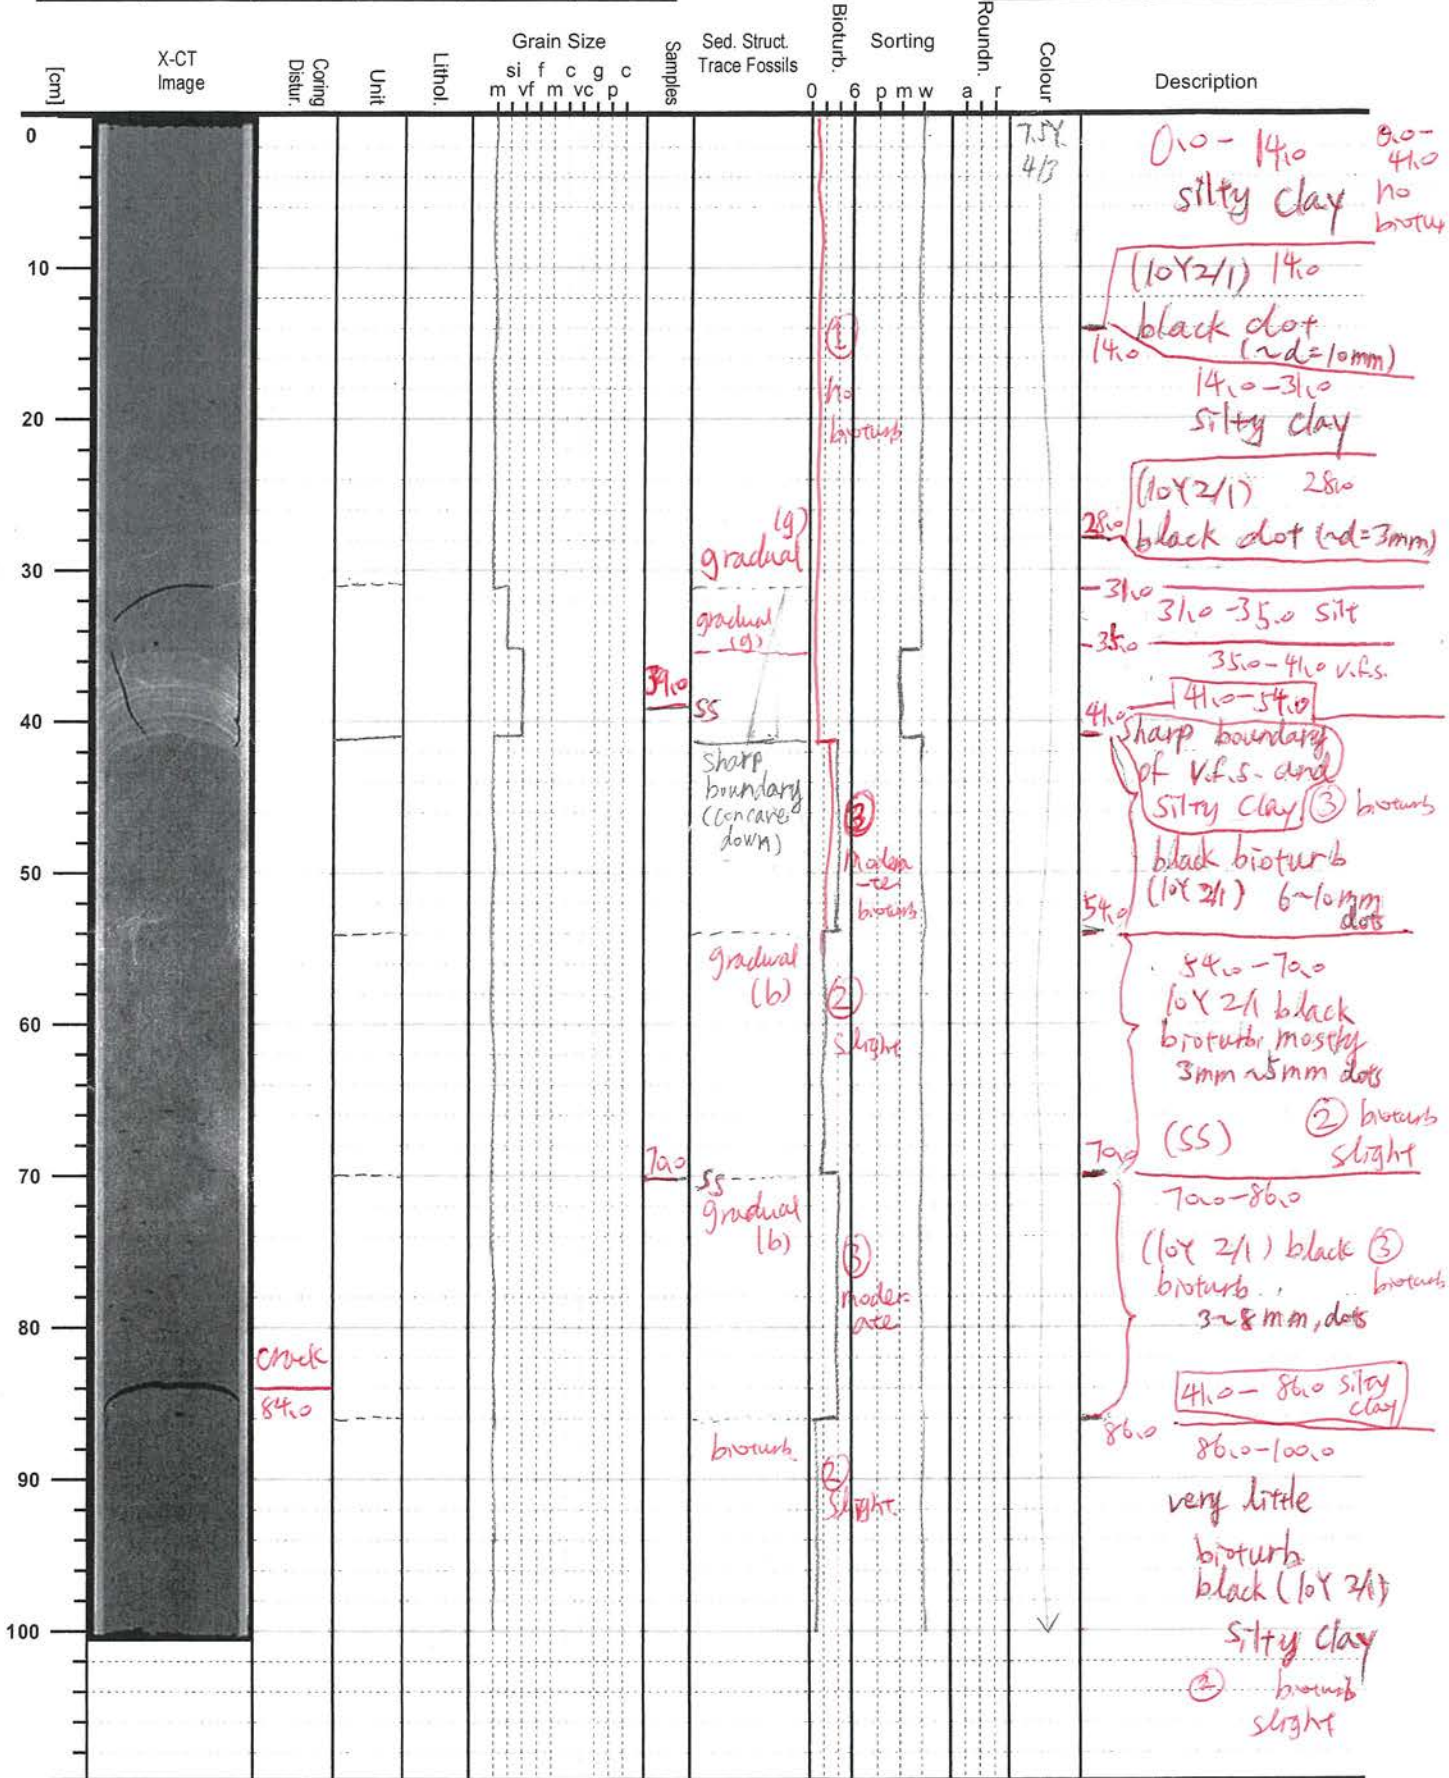 [cm]
X-CT
Image
Coring
Distur.
Unit
Lithol.
Grain Size
si f c g c
m vf m vc p
Samples
Sed. Struct.
Trace Fossils
Bioturb.
0 6
Sorting
p m w
Roundn.
a r
Colour
Description
0
10
20
30
40
50
60
70
80
90
100
crack
84.0
39.0
70.0
(g)
gradual
gradual
(g)
SS
sharp
boundary
(concave
down)
gradual
(b)
SS
gradual
(b)
bioturb.
①
no
bioturb
③
modera
-te
bioturb
②
slight
③
moder-
ate
②
slight
7.5Y
4/3
0.0 - 14.0
silty clay
0.0-
41.0
no
biotur
(10Y2/1) 14.0
black dot
(~d=10mm)
14.0
14.0-31.0
silty clay
(10Y2/1) 28.0
28.0
black dot (~d=3mm)
31.0
31.0-35.0 silt
35.0
35.0-41.0 v.f.s.
41.0-54.0
41.0
sharp boundary
of v.f.s. and
silty clay ③ bioturb
black bioturb
(10Y 2/1) 6~10mm
dots
54.0
54.0-70.0
10Y 2/1 black
bioturb. mostly
3mm~5mm dots
② bioturb
(SS) slight
70.0
70.0-86.0
(10Y 2/1) black ③
bioturb. bioturb
3~8mm, dots
41.0 - 86.0 silty
clay
86.0
86.0-100.0
very little
bioturb
black (10Y 2/1)
silty clay
② bioturb
slight